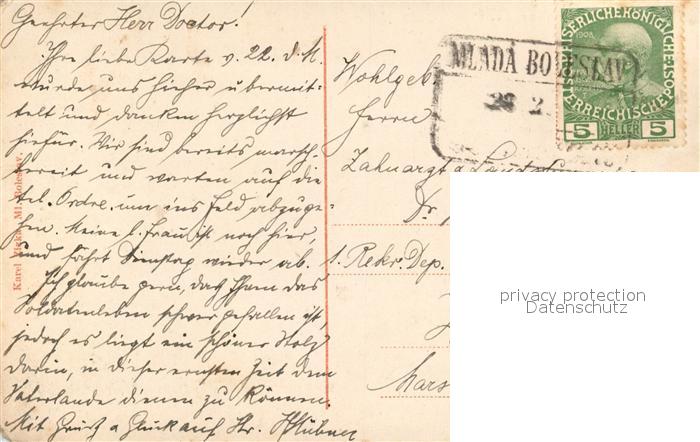 Geehrter Herr Doctor!
Ihre liebe Karte v. 22. d. M.
wurde uns hieher übermit-
telt und danken herzlichst
hiefür. Wir sind bereits marsch-
bereit und warten auf die
tel. Ordre um ins Feld abzuge-
hen. Meine l. Frau ist noch hier,
und fährt Dienstag wieder ab.
Ich glaube gern, daß Ihnen das
Soldatenleben schwer gefallen ist,
jedoch es liegt ein schöner Stolz
darin, in dieser ernsten Zeit dem
Vaterlande dienen zu können.
Mit Gruß u Handkuß Ihr Hübner
Karel Ml. Boleslav.
MLADÁ BOLESLAV
26 2
1908
5 HELLER 5
Wohlgeb
Herrn
Zahnarzt u
Dr
1. Rekr. Dep.
Mars
privacy protection
Datenschutz